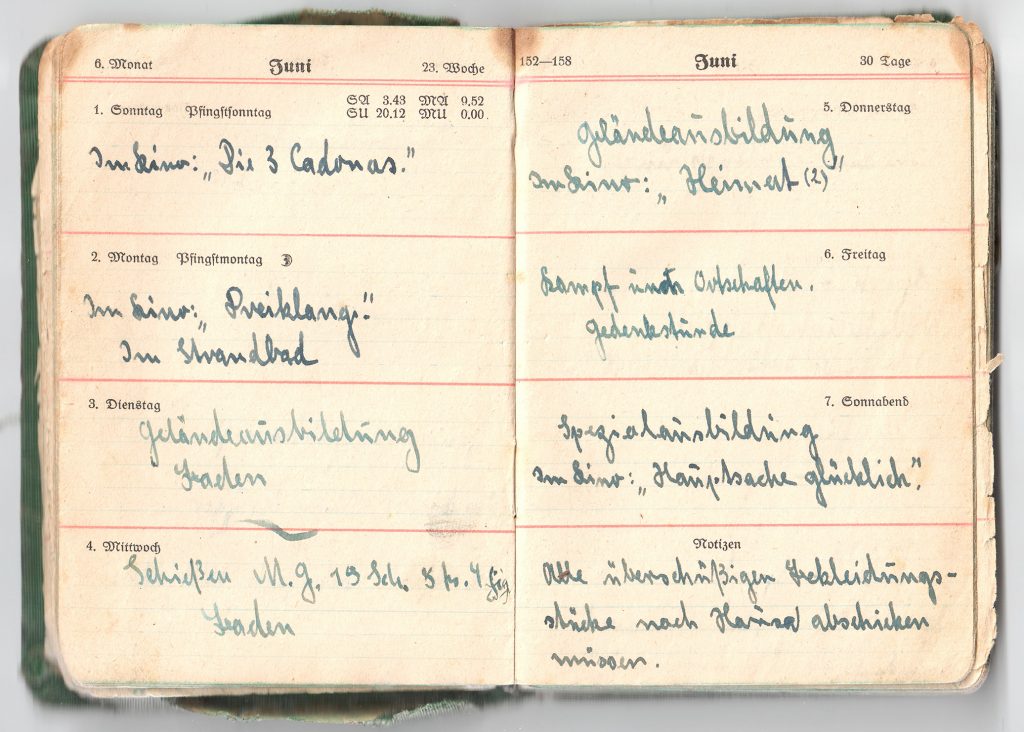 6. Monat Juni 23. Woche
1. Sonntag Pfingstsonntag SA 3.43 MA 9.52
SU 20.12 MU 0.00
Im Kino: „Die 3 Codonas."
2. Montag Pfingstmontag ☽
Im Kino: „Dreiklang."
Im Strandbad
3. Dienstag
Geländeausbildung
Baden
4. Mittwoch
Schießen M.G. 19 Sch.
Baden
152—158 Juni 30 Tage
5. Donnerstag
Geländeausbildung
Im Kino: „Heimat (2)"
6. Freitag
Kampf um Ortschaften.
Gedenkstunde
7. Sonnabend
Spezialausbildung
Im Kino: „Hauptsache glücklich".
Notizen
Alle überschüßigen Bekleidungs-
stücke nach Hause abschicken
müssen.